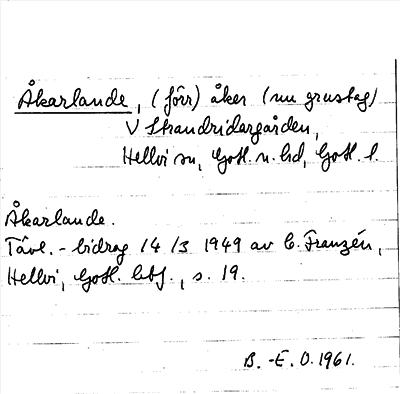 Åkarlande, (förr) åker (nu grustag)
V Strandridaregården,
Hellvi sn, Gotl. n. hd, Gotl. l.
Åkarlande.
Tävl.-bidrag 14/3 1949 av C. Franzén,
Hellvi, Gotl. , s. 19.
B.-E. O. 1961.